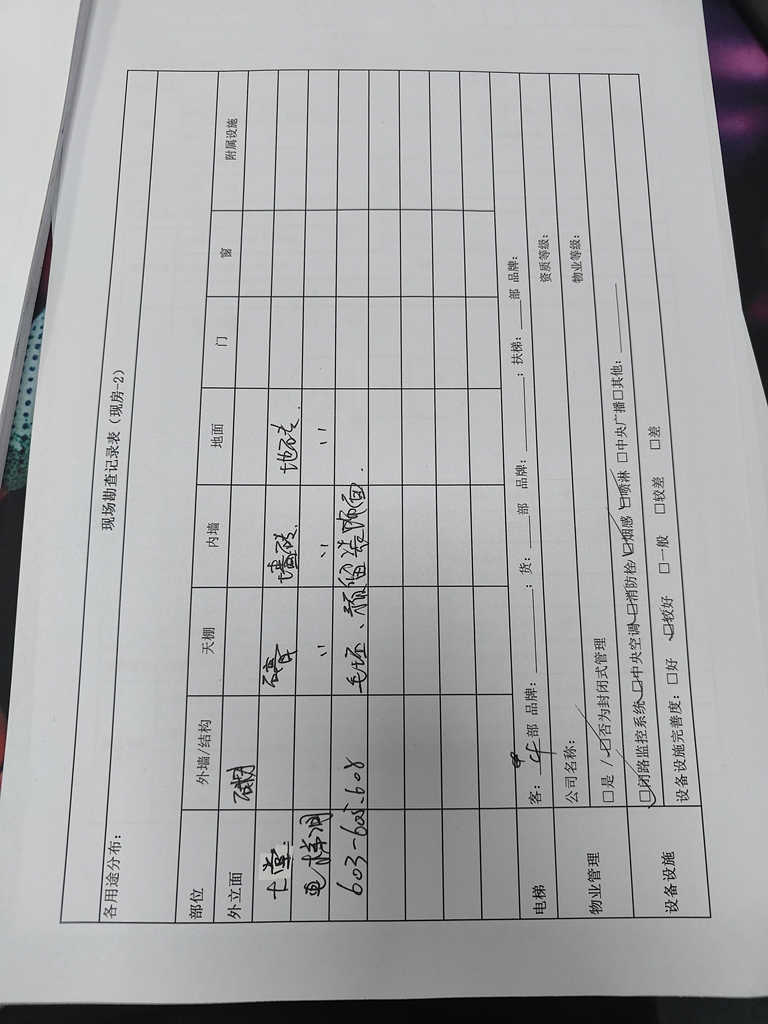 现场勘查记录表（现房-2）
各用途分布：
部位 外墙/结构 天棚 内墙 地面 门 窗 附属设施
外立面
大堂 墙砖 地砖
电梯间 〃 〃 〃
603-605、608 毛坯、预留装饰面
电梯 客： 部 品牌： ；货： 部 品牌： ；扶梯： 部 品牌：
物业管理 公司名称： 资质等级：
□是 / ☑否为封闭式管理 物业等级：
设备设施 ☑闭路监控系统☑中央空调☑消防栓☑烟感☑喷淋□中央广播□其他：
设备设施完善度：□好 ☑较好 □一般 □较差 □差